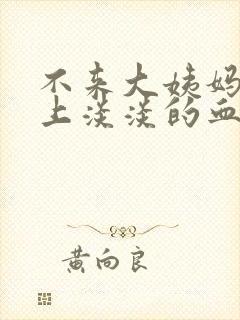 不来大姨妈
上淡淡的血
黄向良